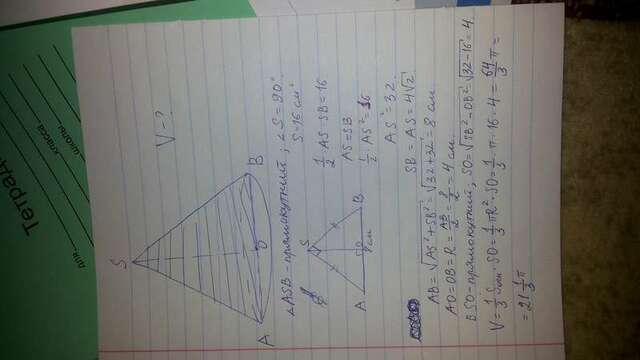 Тетрадь
для
класса
школы
V - ?
S
A
O
B
△ASB - прямокутний; ∠S = 90°
S = 16 см²
S
A
B
8 см
1/2 · AS · SB = 16
AS = SB
1/2 · AS² = 16
AS² = 32
SB = AS = 4√2
AB = √AS² + SB² = √32 + 32 = 8 см
AO = OB = R = AB/2 = 8/2 = 4 см
BSO - прямокутний, SO = √SB² - OB² = √32 - 16 = 4
V = 1/3 Sосн · SO = 1/3 πR² · SO = 1/3 · π · 16 · 4 = 64/3 π =
= 21 1/3 π